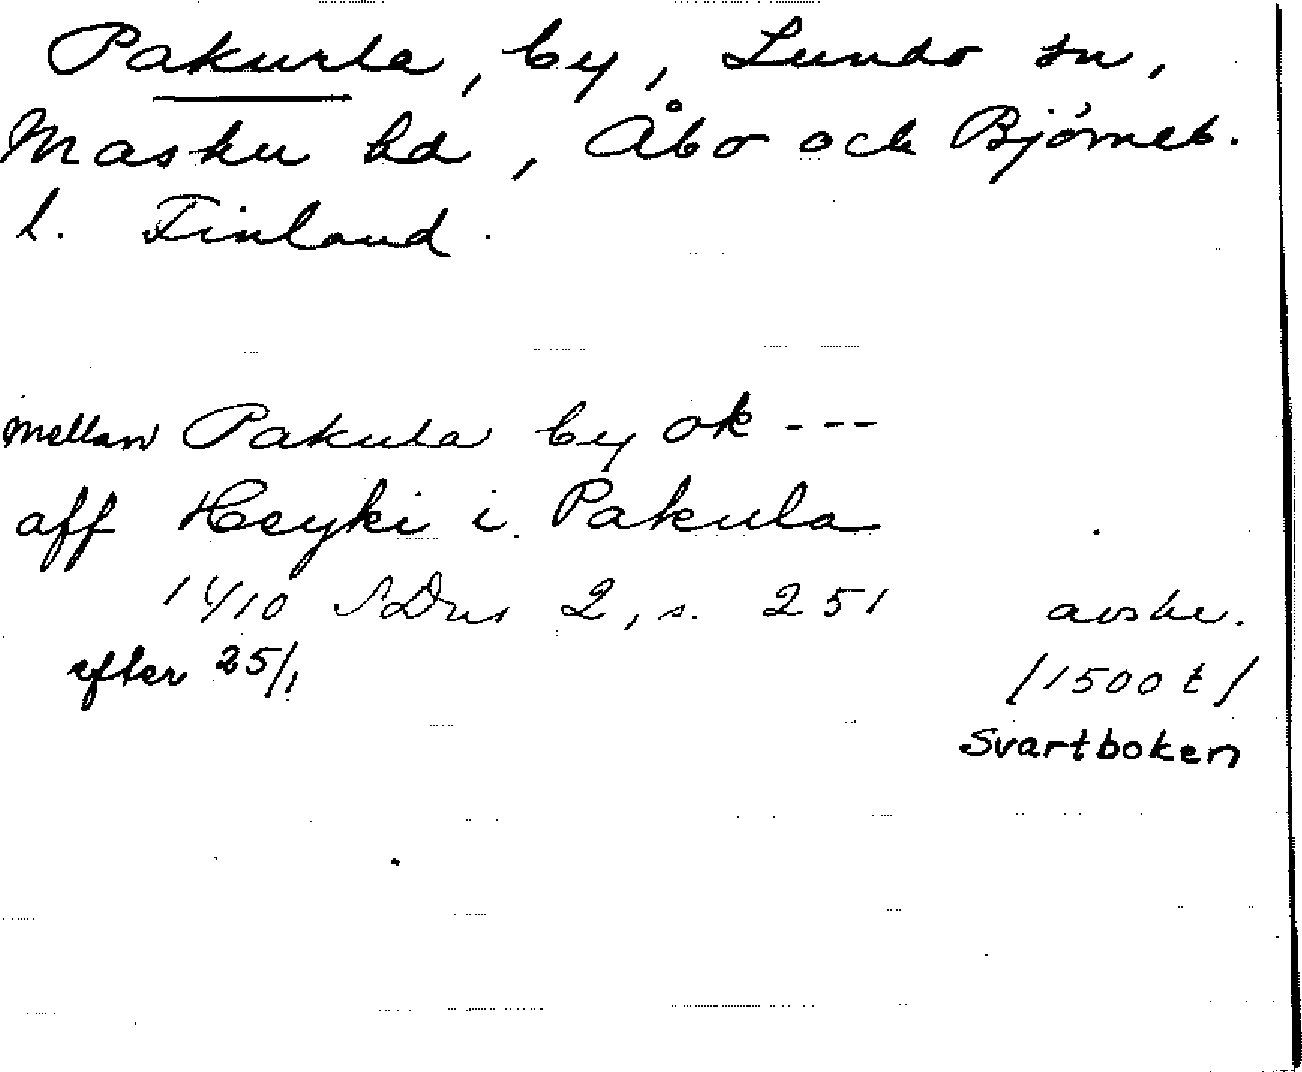 Pakurla, by, Lundo sn,
Masku hd, Åbo och Björneb.
l. Finland.
mellan Pakula by ok ---
aff Heyki i Pakula
1410 SDns 2, s. 251 avskr.
efter 25/1 /1500 t/
Svartboken